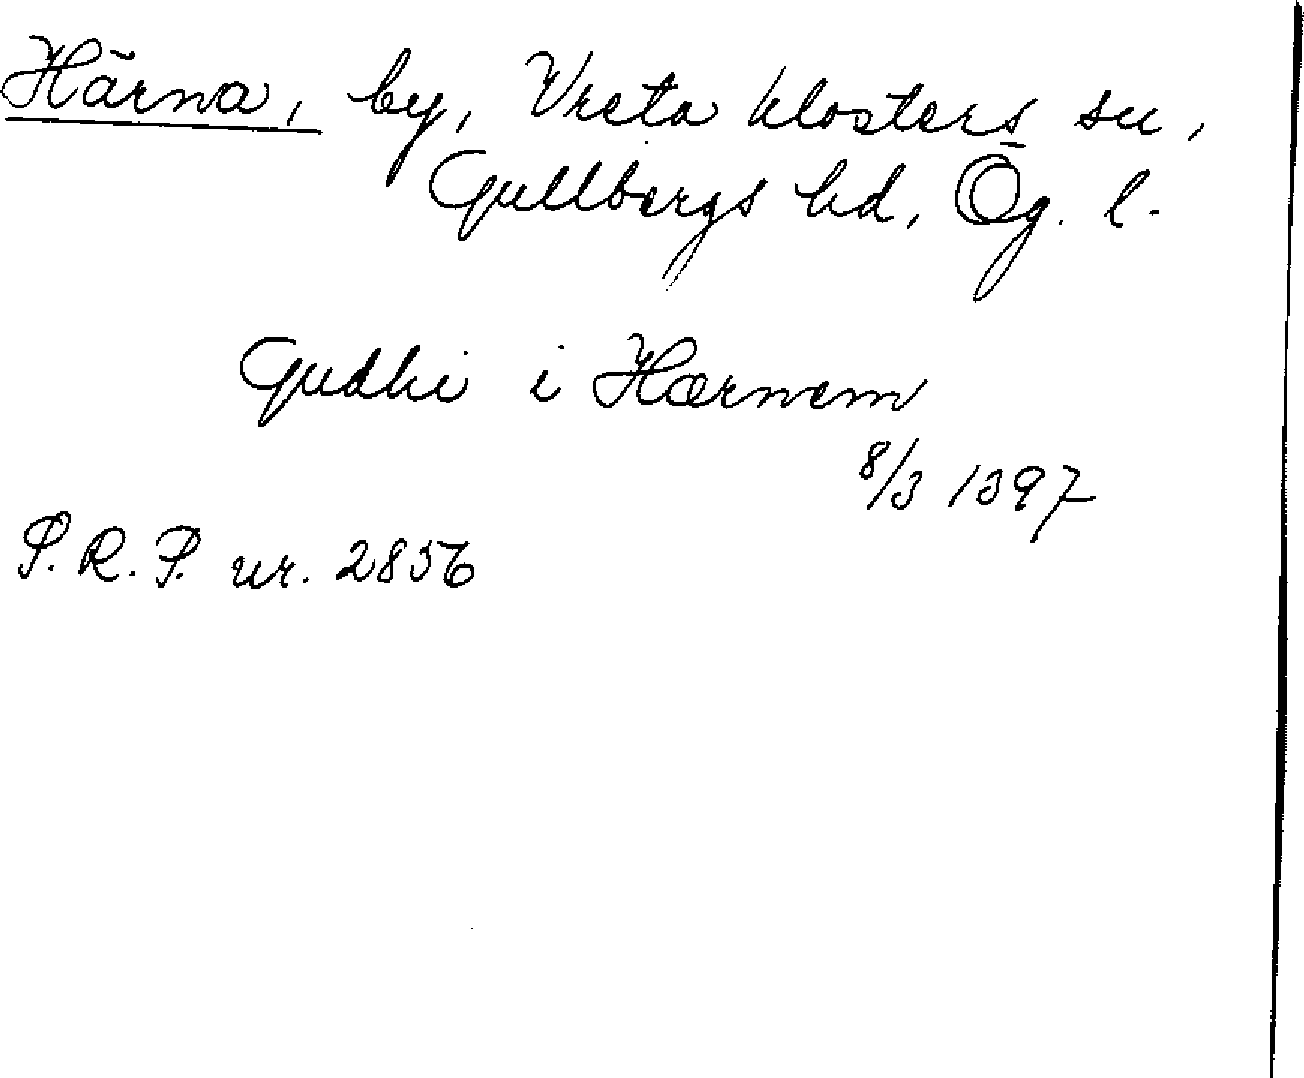 Härna, by, Vreta klosters sn,
Gullbergs hd, Ög. l.
Gudhi i Hærnem
8/3 1397
P.R.P. nr. 2856